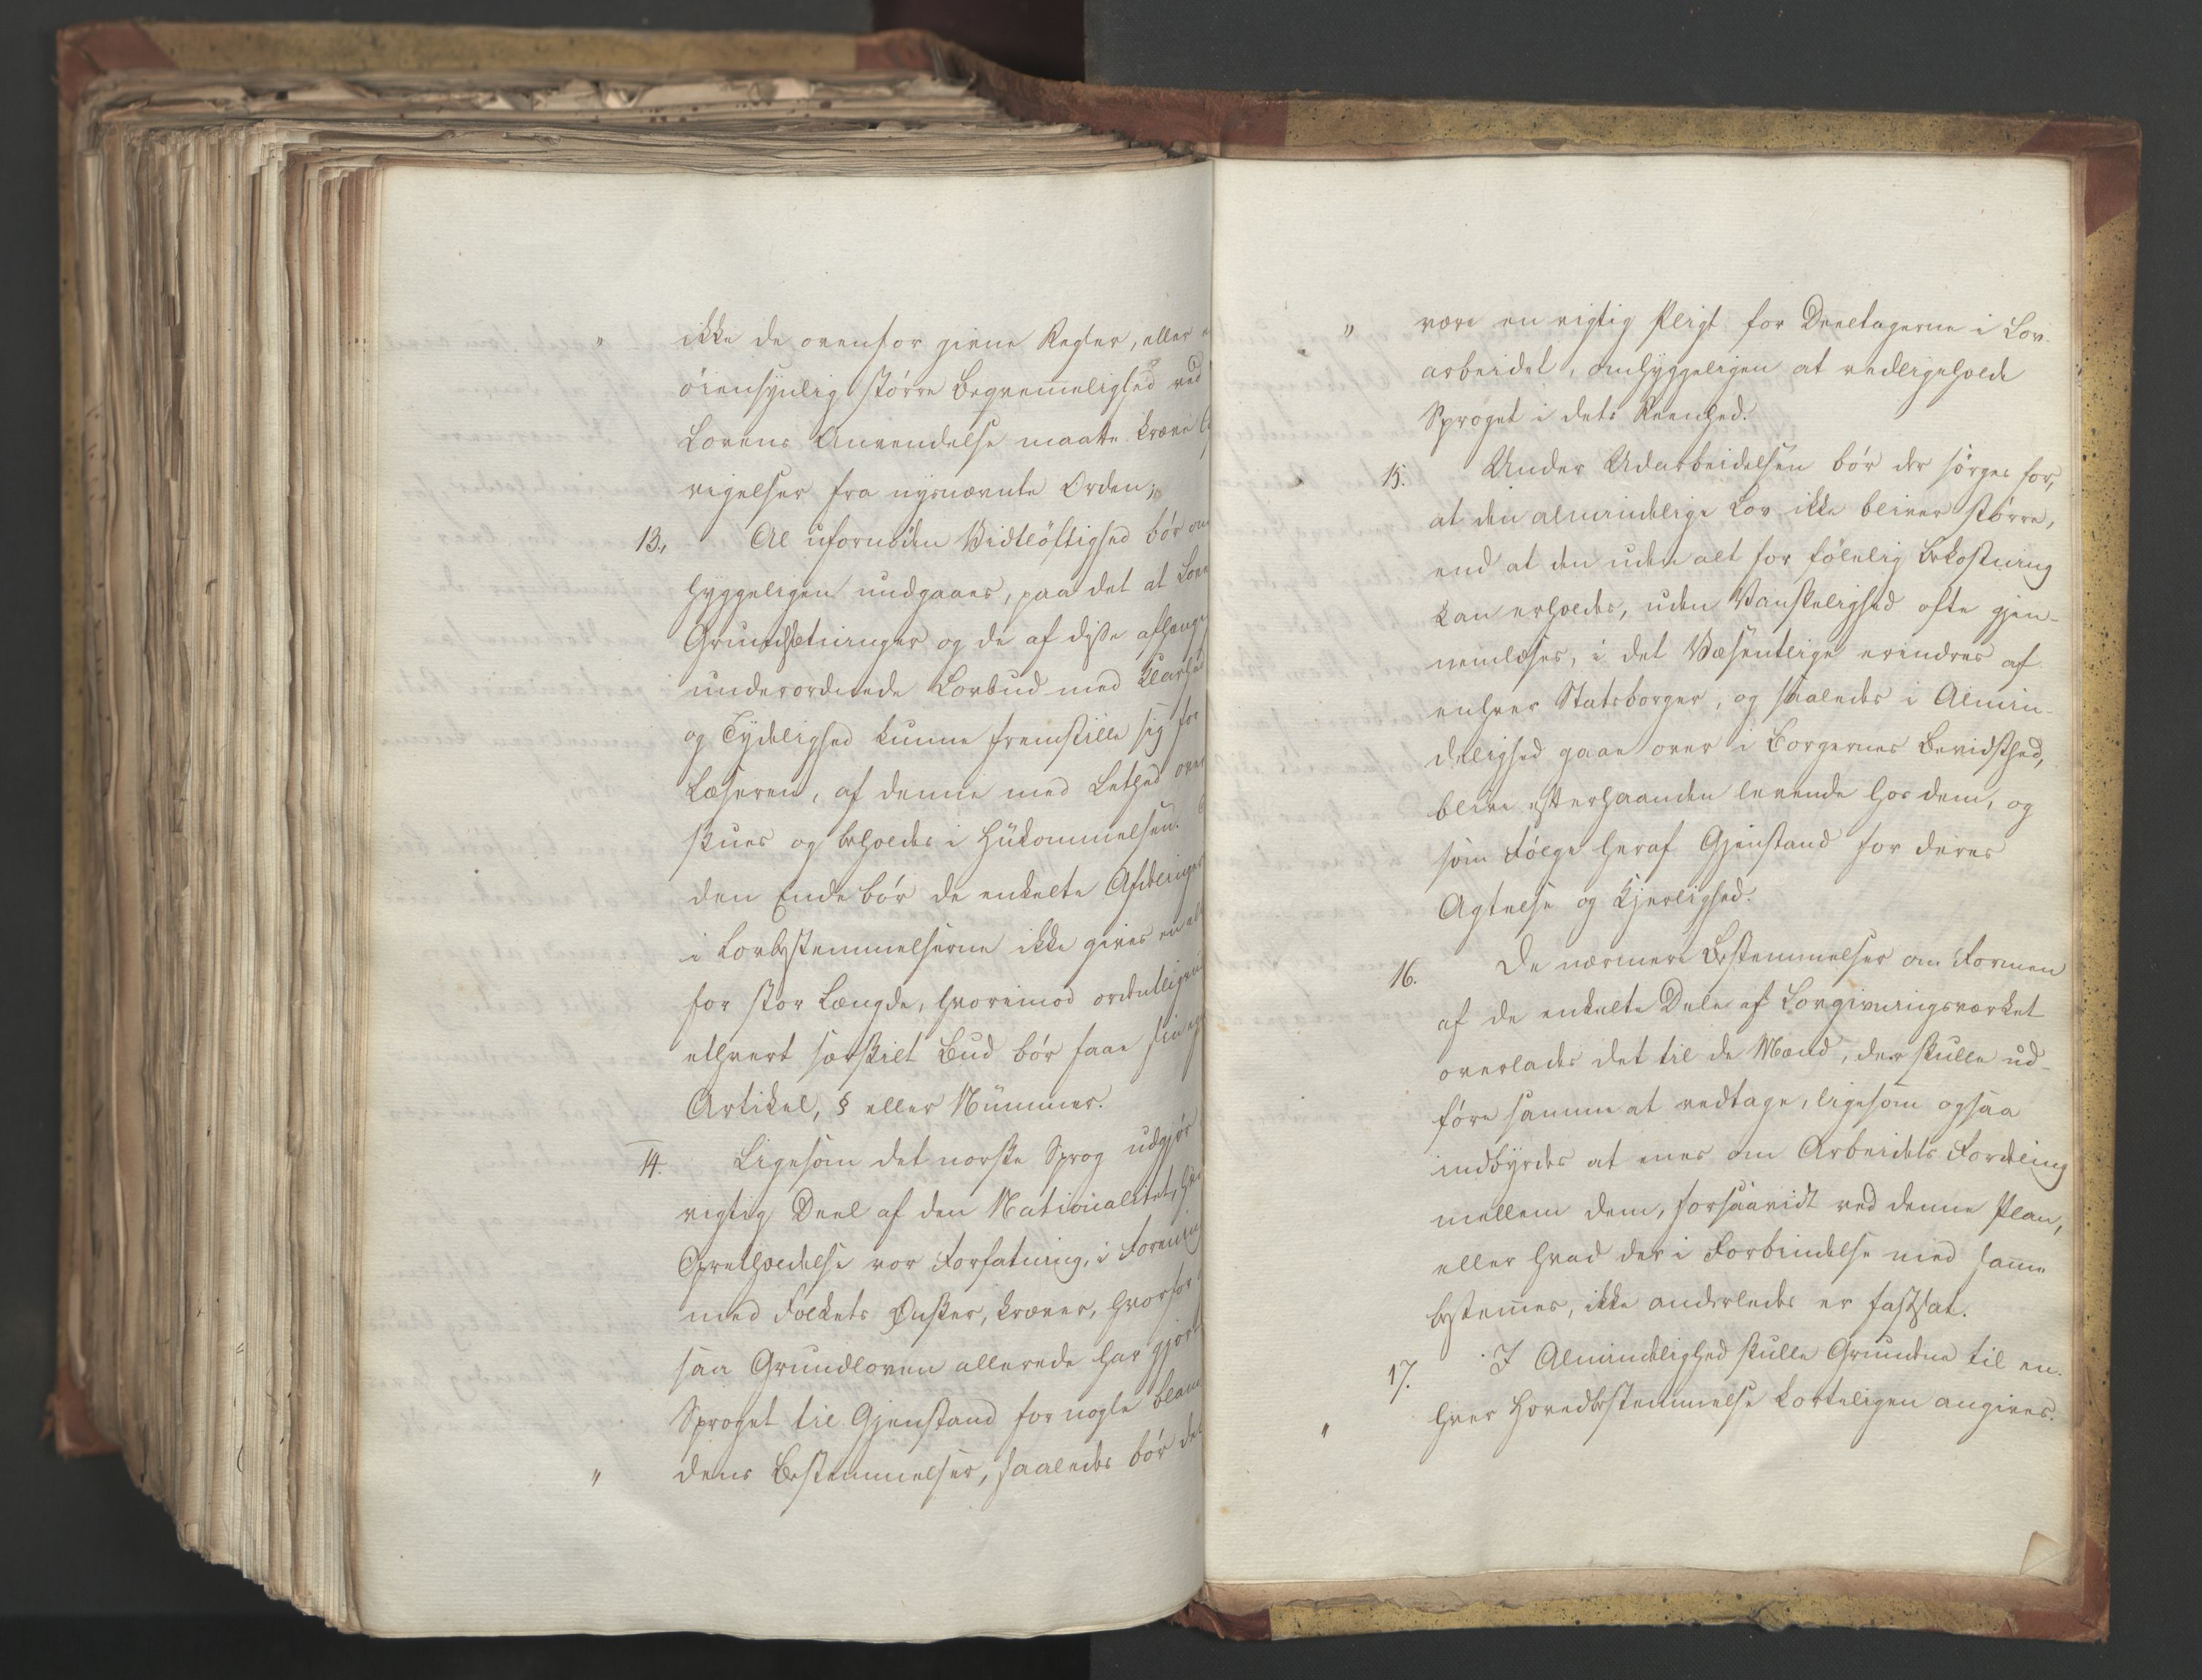 " ikke de ovenfor givne Regler, eller
öiensynlig större Beqvemmelighed ved
Lovens Anvendelse maatte kræve
vigelser fra nysnævnte Orden;
13., Al ufornöden Vidtlöftighed bör om
hyggeligen undgaaes, paa det at Love
Grundsætninger og de af disse afhængi
underordnede Lovbud med Klarhed
og Tydelighed kunne fremstille sig for
Læseren, af denne med Lethed over
skues og beholdes i Hükommelsen.
den Ende bör de enkelte Afdelinger
i Lovbestemmelserne ikke gives en alt
for stor Længde, hvorimod ordentligvii
ethvert særskilt Bud bör faae sin ege
Artikel, § eller Nümmer.
14. Ligesom det norske Sprog udgjör
vigtig Deel af den Nationalitet, hvi
Opretholdelse vor Forfatning, i Forening
med Folkets Ønsker, kræver, hvorfor
saa Grundloven allerede har gjort
Sproget til Gjenstand for nogle blan
" dens Bestemmelser, saaledes bör det
" være en vigtig Pligt for Deeltagerne i Lov-
arbeidet, omhyggeligen at vedligeholde
Sproget i dets Reenhed.
15. Under Udarbeidelsen bör der sörges for,
at den almindelige Lov ikke bliver större,
end at den uden alt for fölelig Bekostning
kan erholdes, uden Vanskelighed ofte gjen-
nemlæses, i det Væsentlige erindres af
enhver Statsborger, og saaledes i Almin-
delighed gaae over i Borgernes Bevidsthed,
blive efterhaanden levende hos dem, og
som Fölge heraf Gjenstand for deres
Agtelse og Kjerlighed.
16. De nærmere Bestemmelser om Formen
af de enkelte Dele af Lovgivningsværket
overlades det til de Mænd, der skulle ud-
före samme at vedtage, ligesom ogsaa
indbyrdes at enes om Arbeidets Fordeling
mellem dem, forsaavidt ved denne Plan,
eller hvad der i Forbindelse med samme
bestemmes, ikke anderledes er fastsat.
17. I Almindelighed skulle Grundene til en-
" hver Hovedbestemmelse korteligen angives.